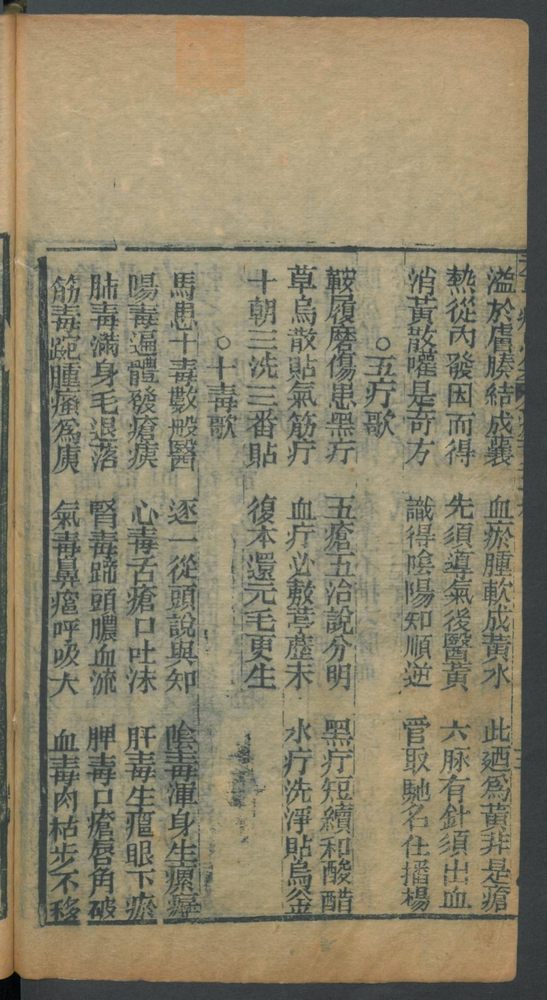 溢於膚腠結成襄　血瘀腫軟成黃水　此廼為黃非是瘡
熱從內發因而得　先須導氣後醫黃　六脉有針須出血
消黃散嚾是奇方　識得陰陽知順逆　管取馳名在播楊
○五疔歌
鞍屨磨傷患黑疔　五瘡五治說分明　黑疔短續和酸醋
草烏散貼氣筋疔　血疔必敷葶藶末　水疔洗淨貼烏金
十朝三洗三番貼　復本還元毛更生
○十毒歌
馬患十毒數般醫　逐一從頭說與知　陰毒渾身生瘰癧
陽毒遍體發瘡痍　心毒舌瘡口吐沫　肝毒生瘟眼下瘀
肺毒滿身毛退落　腎毒蹄頭膿血流　脾毒口瘡唇角破
筋毒踠腫癢為庚　氣毒鼻瘡呼吸大　血毒肉枯步不移